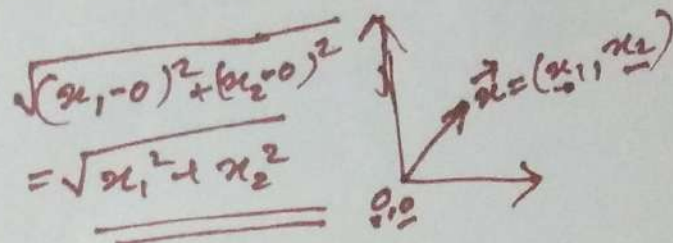 √(x₁-0)²+(x₂-0)²
= √x₁²+x₂²
x⃗=(x₁,x₂)
0,0